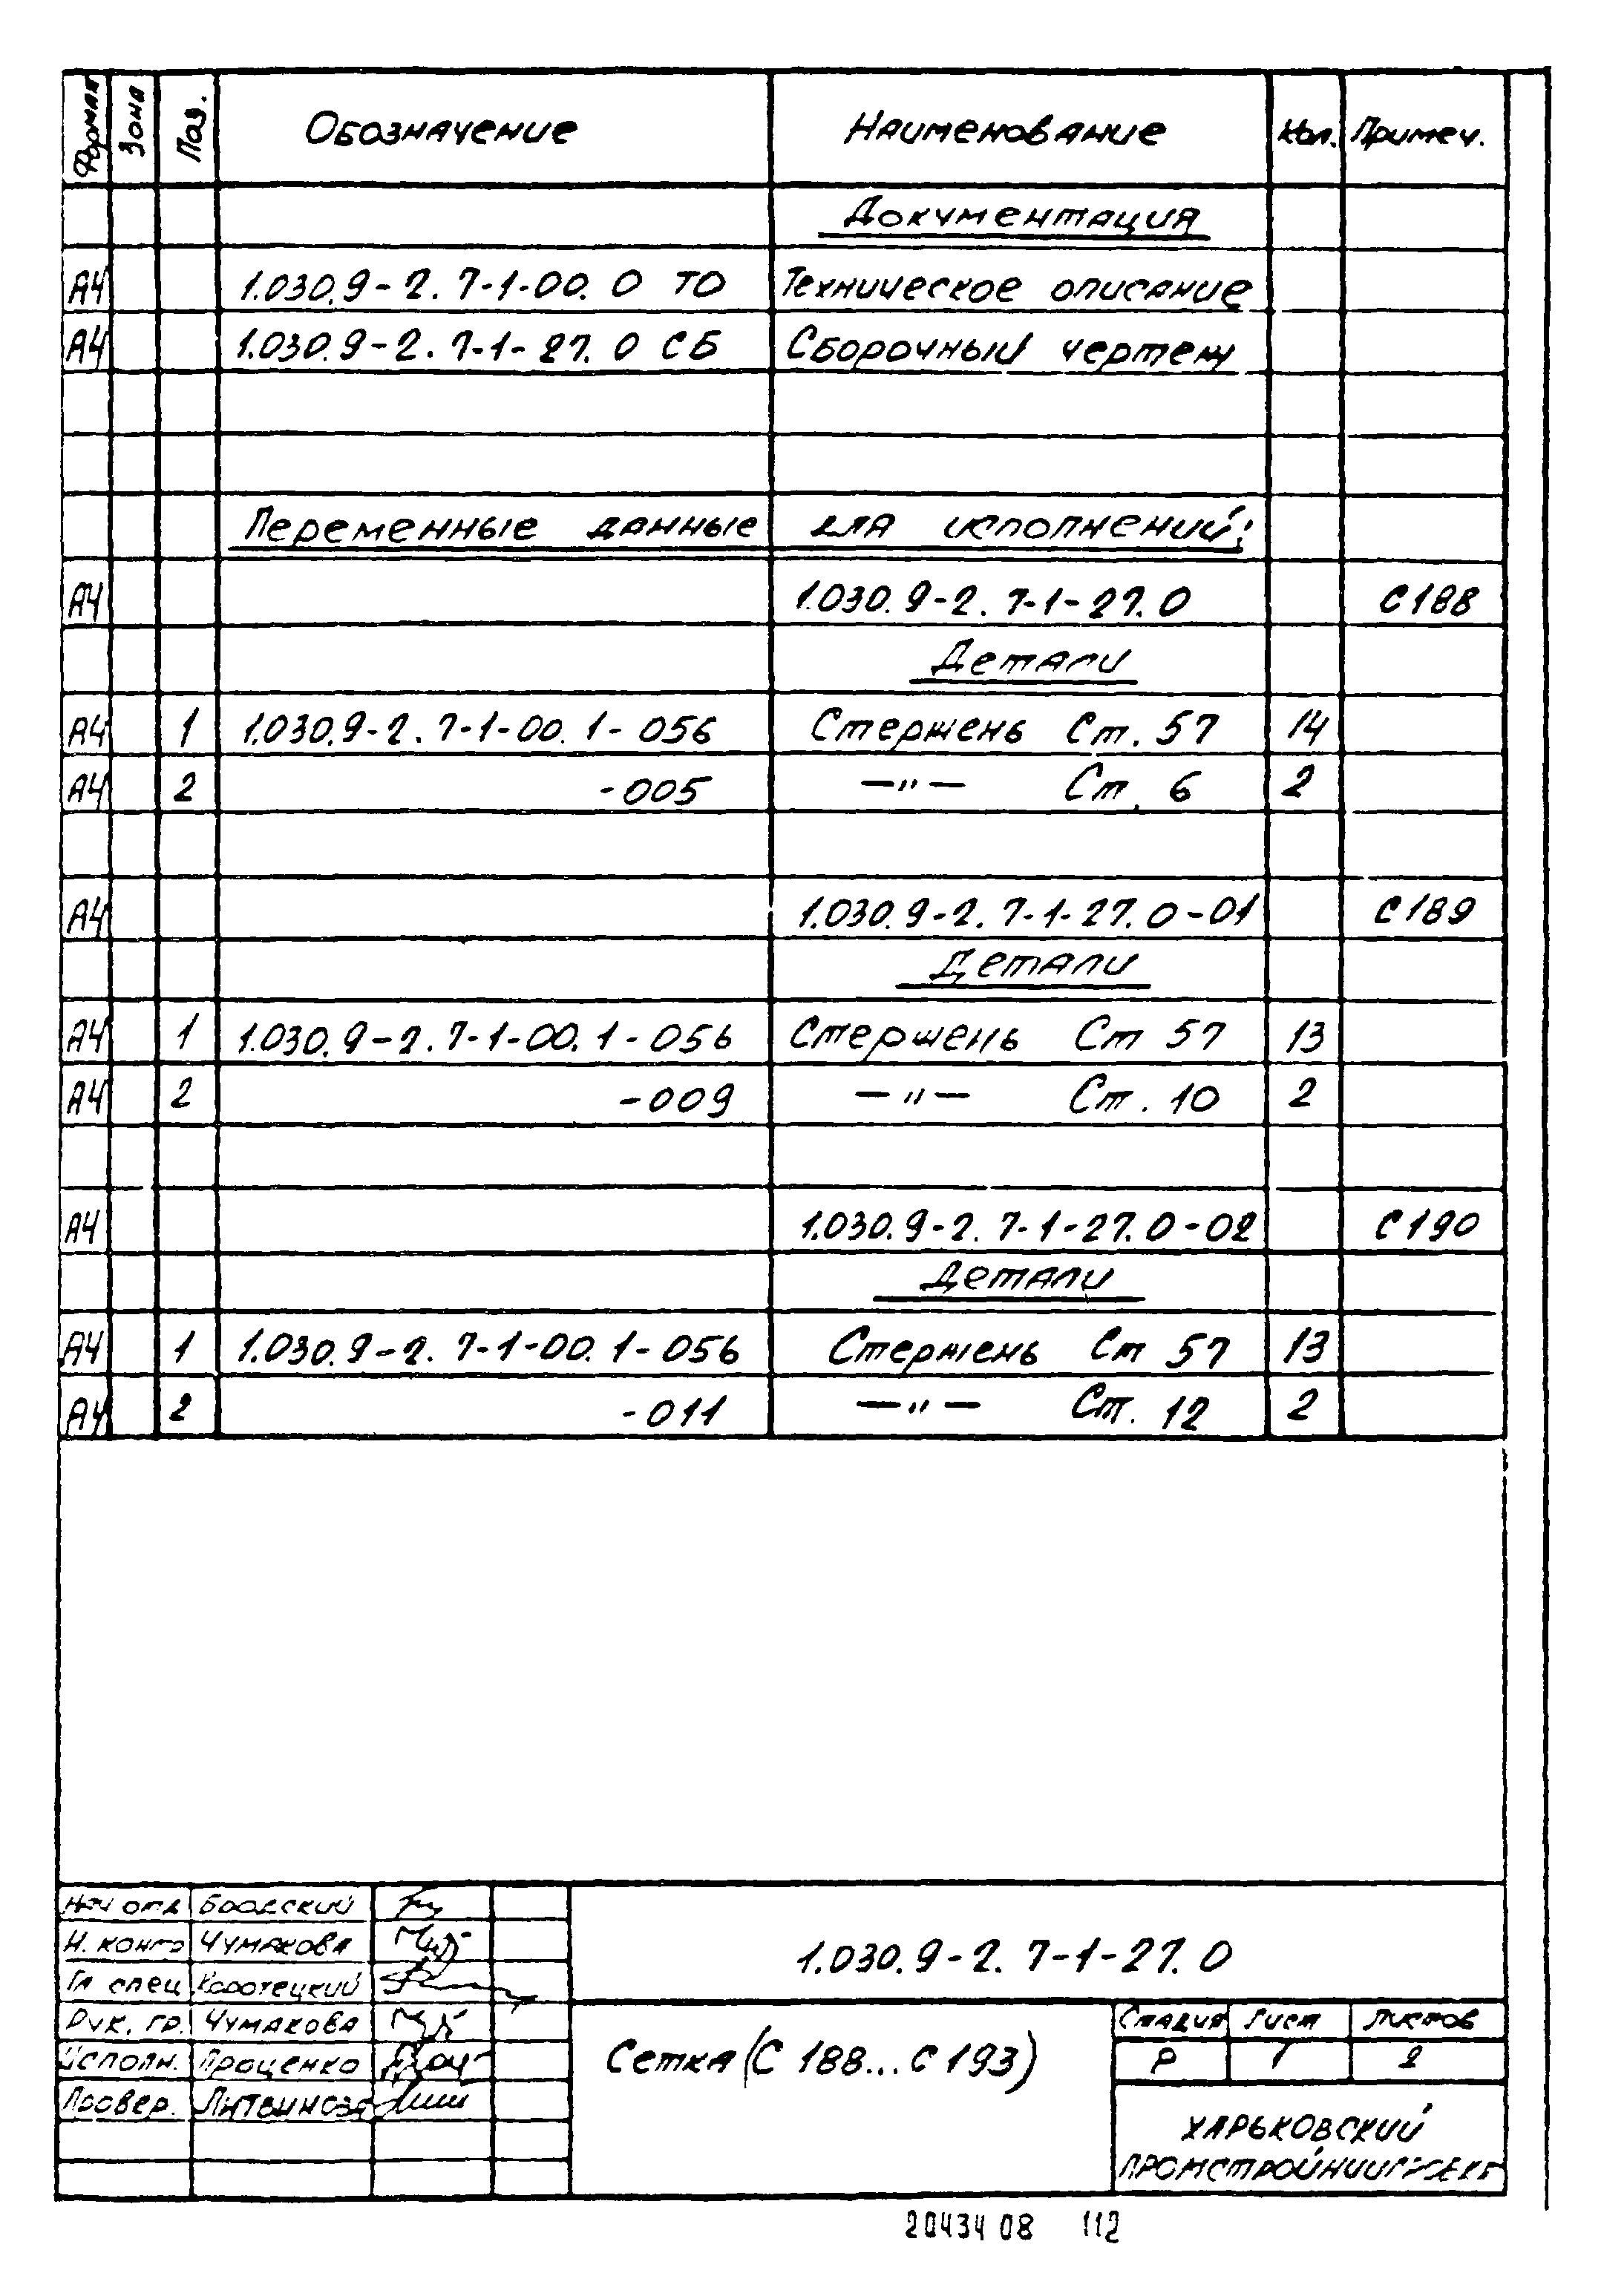 Формат Зона Поз. Обозначение Наименование Кол. Примеч.
Документация
А4 1.030.9-2.7-1-00.0 ТО Техническое описание
А4 1.030.9-2.7-1-27.0 СБ Сборочный чертеж
Переменные данные для исполнений:
А4 1.030.9-2.7-1-27.0 С188
Детали
А4 1 1.030.9-2.7-1-00.1-056 Стержень Ст. 57 14
А4 2 -005 —"— Ст. 6 2
А4 1.030.9-2.7-1-27.0-01 С189
Детали
А4 1 1.030.9-2.7-1-00.1-056 Стержень Ст 57 13
А4 2 -009 —"— Ст. 10 2
А4 1.030.9-2.7-1-27.0-02 С190
Детали
А4 1 1.030.9-2.7-1-00.1-056 Стержень Ст 57 13
А4 2 -011 —"— Ст. 12 2
Нач отд Бродский
Н. контр Чумакова
Гл спец Коротецкий
Рук. гр. Чумакова
Исполн. Проценко
Провер. Литвинова
1.030.9-2.7-1-27.0
Сетка (С 188...С 193)
Стадия Лист Листов
Р 1 2
ХАРЬКОВСКИЙ
ПРОМСТРОЙНИИПРОЕКТ
20434 08 112